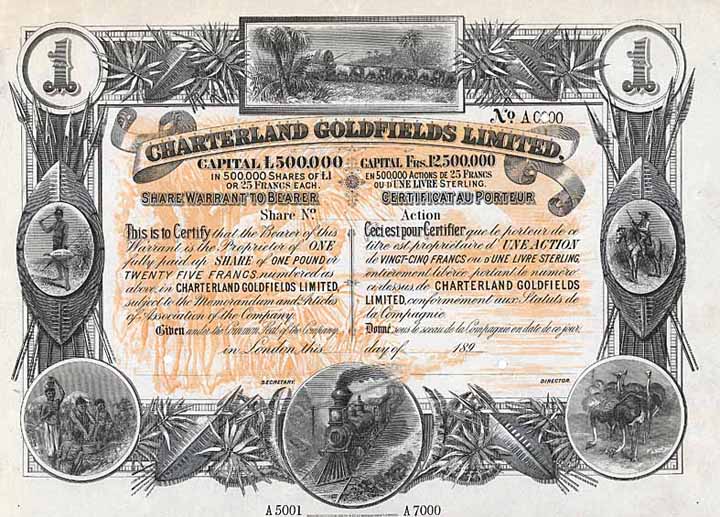 1
1
No. A 0000
CHARTERLAND GOLDFIELDS LIMITED.
CAPITAL £500,000
IN 500,000 SHARES OF £1
OR 25 FRANCS EACH.
SHARE WARRANT TO BEARER
Share No.
This is to Certify that the Bearer of this
Warrant is the Proprietor of ONE
fully paid up SHARE of ONE POUND or
TWENTY FIVE FRANCS, numbered as
above, in CHARTERLAND GOLDFIELDS LIMITED,
subject to the Memorandum and Articles
of Association of the Company.
Given under the Common Seal of the Company,
CAPITAL FRS. 12,500,000
EN 500000 ACTIONS DE 25 FRANCS
OU D'UNE LIVRE STERLING.
CERTIFICAT AU PORTEUR
Action
Ceci est pour Certifier que le porteur de ce
titre est propriétaire d'UNE ACTION
de VINGT-CINQ FRANCS ou d'UNE LIVRE STERLING,
entièrement libérée, portant le numéro
ci-dessus de CHARTERLAND GOLDFIELDS
LIMITED, conformément aux Statuts de
la Compagnie.
Donné, sous le sceau de la Compagnie en date de ce jour.
in London this day of 189
SECRETARY.
DIRECTOR.
A 5001 A 7000